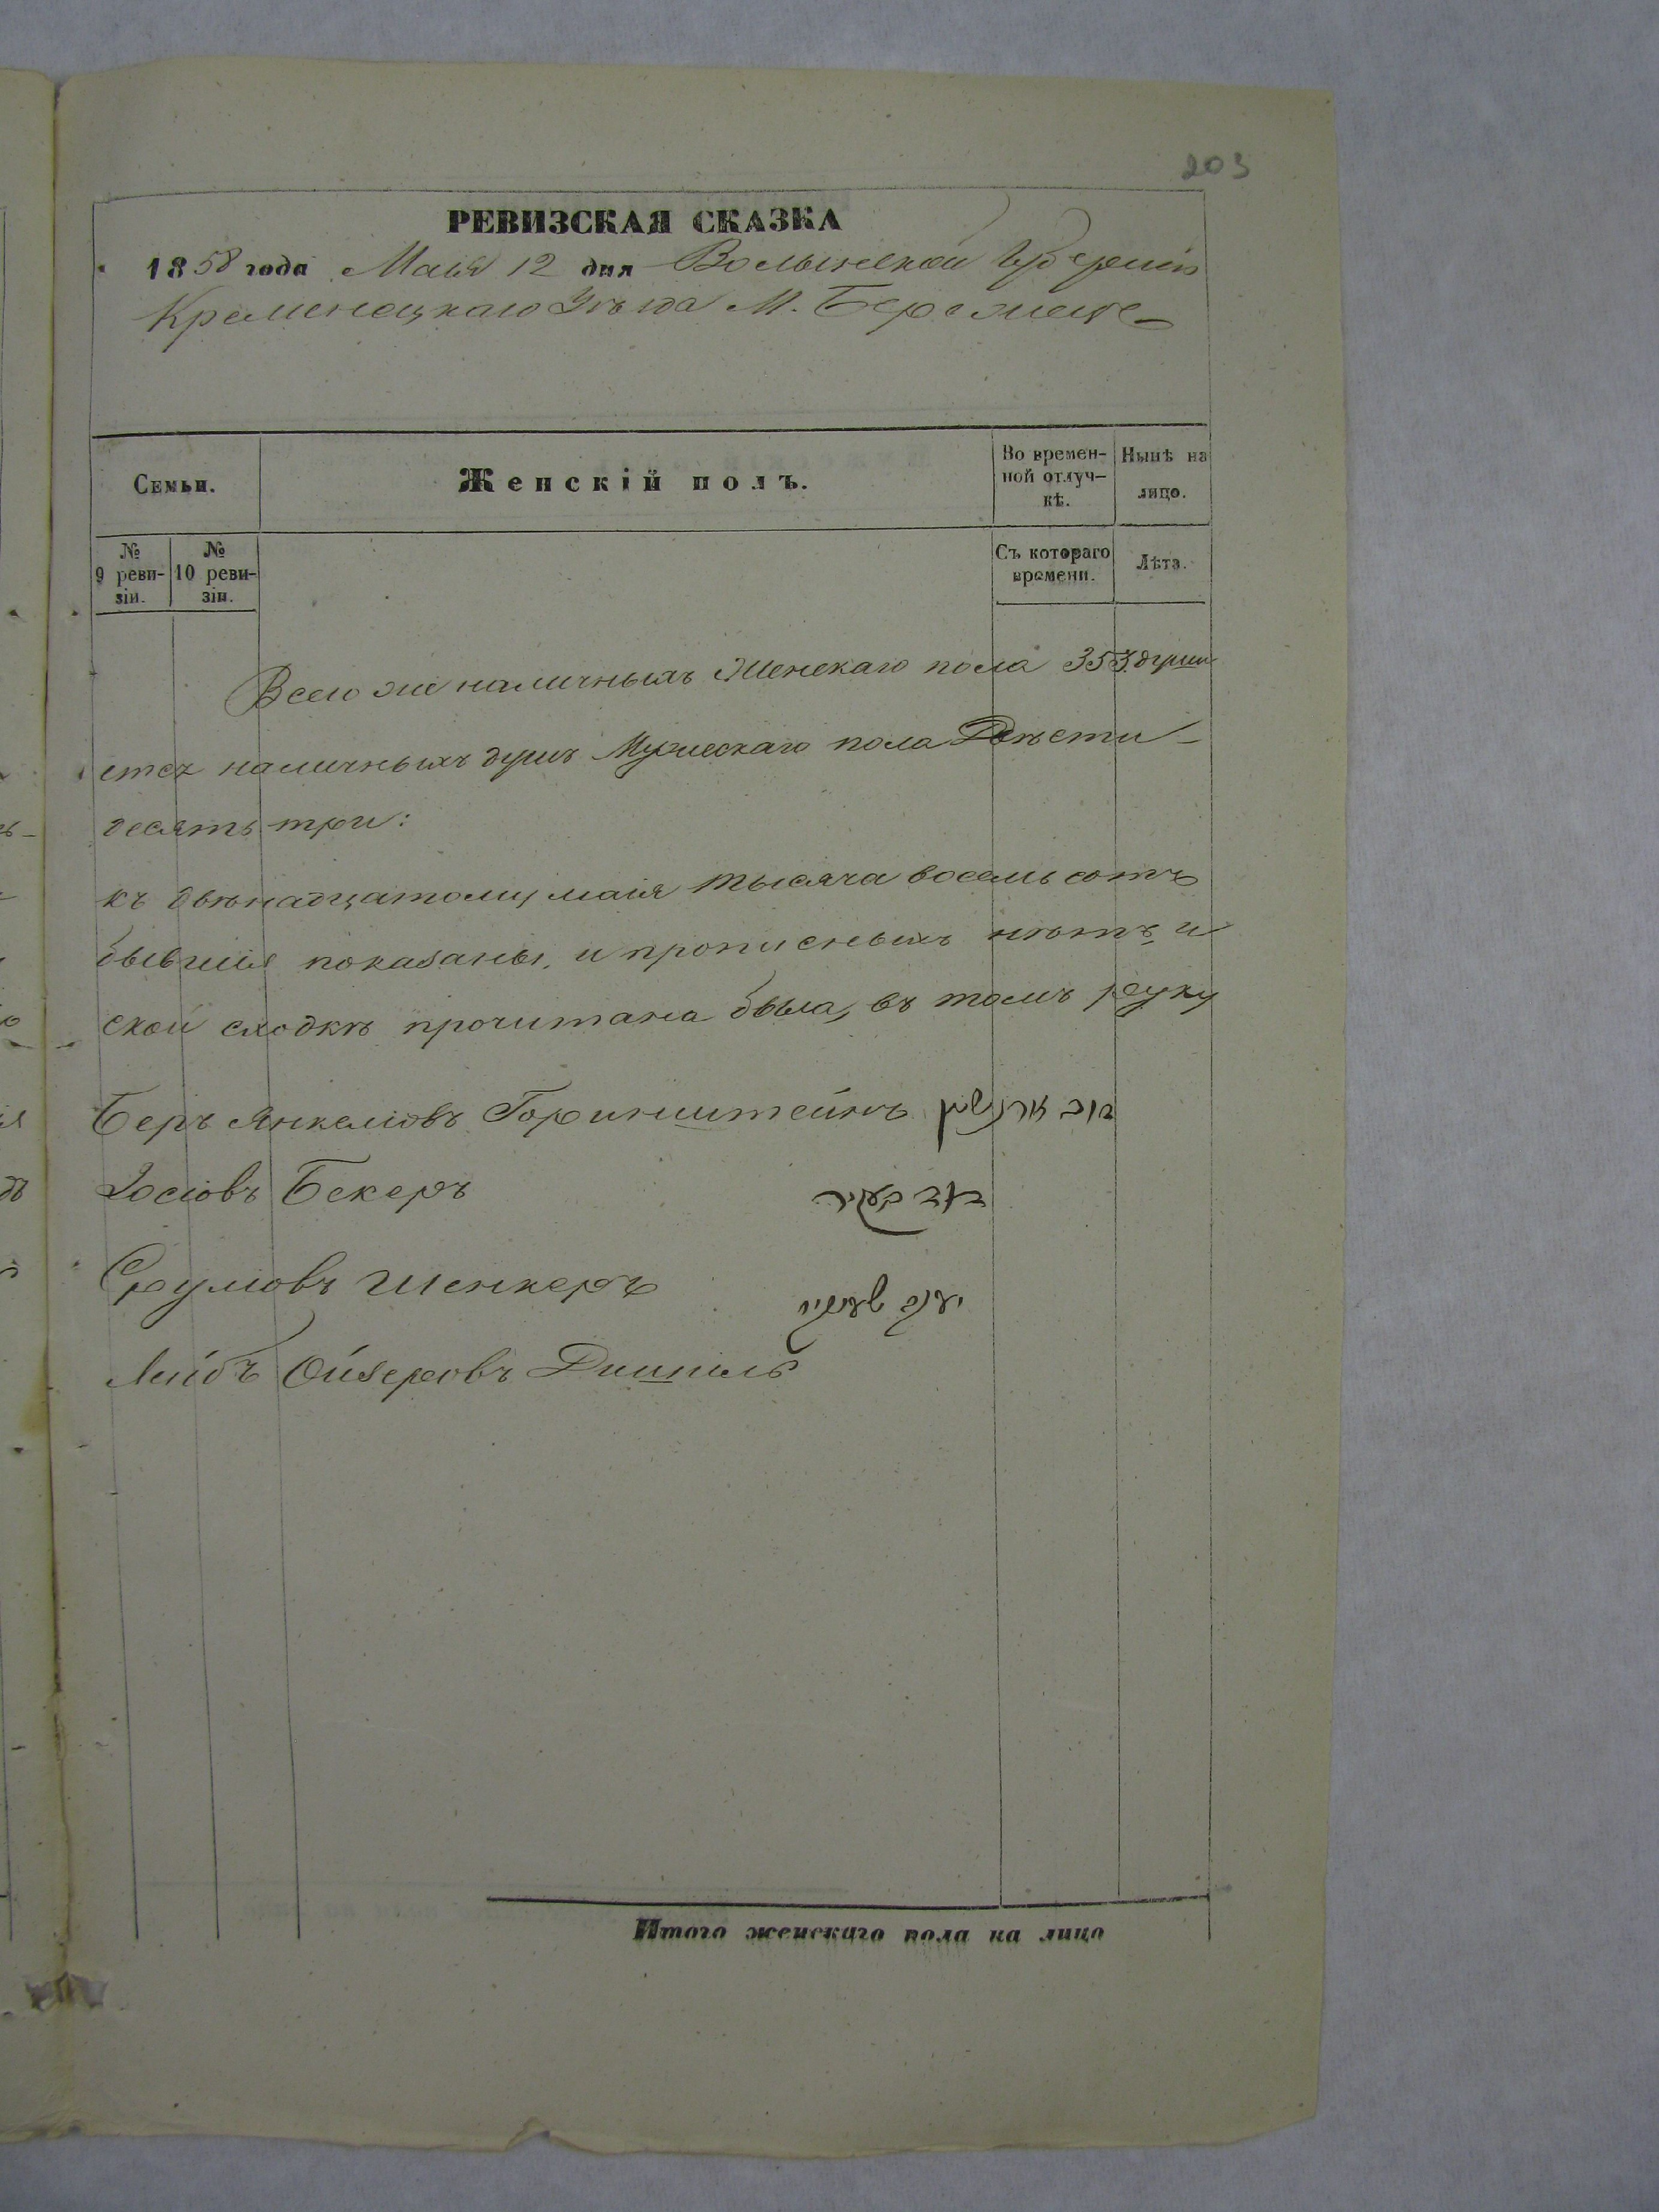 203
РЕВИЗСКАЯ СКАЗКА
1858 года Маія 12 дня Волынской Губерніи
Кременецкаго Уѣзда М. Бережце
Семьи.
Женскій полъ.
Во времен-
ной отлуч-
кѣ.
Нынѣ на
лицо.
№
9 реви-
зіи.
№
10 реви-
зіи.
Съ котораго
времени.
Лѣта.
Всего же наличныхъ Женскаго пола 353 души
наличныхъ душъ Мужескаго пола Двѣсти
десять три:
къ двѣнадцатому маія тысяча восемь сотъ
бывшія показаны, и прописныхъ нѣтъ, и
ской сходкѣ прочитана была, въ томъ руку
Беръ Янкеліовъ Горинштейнъ
Іосіовъ Бекеръ
Сруліовъ Шенкеръ
Лейбъ Ойзеровъ
Итого женскаго пола на лицо